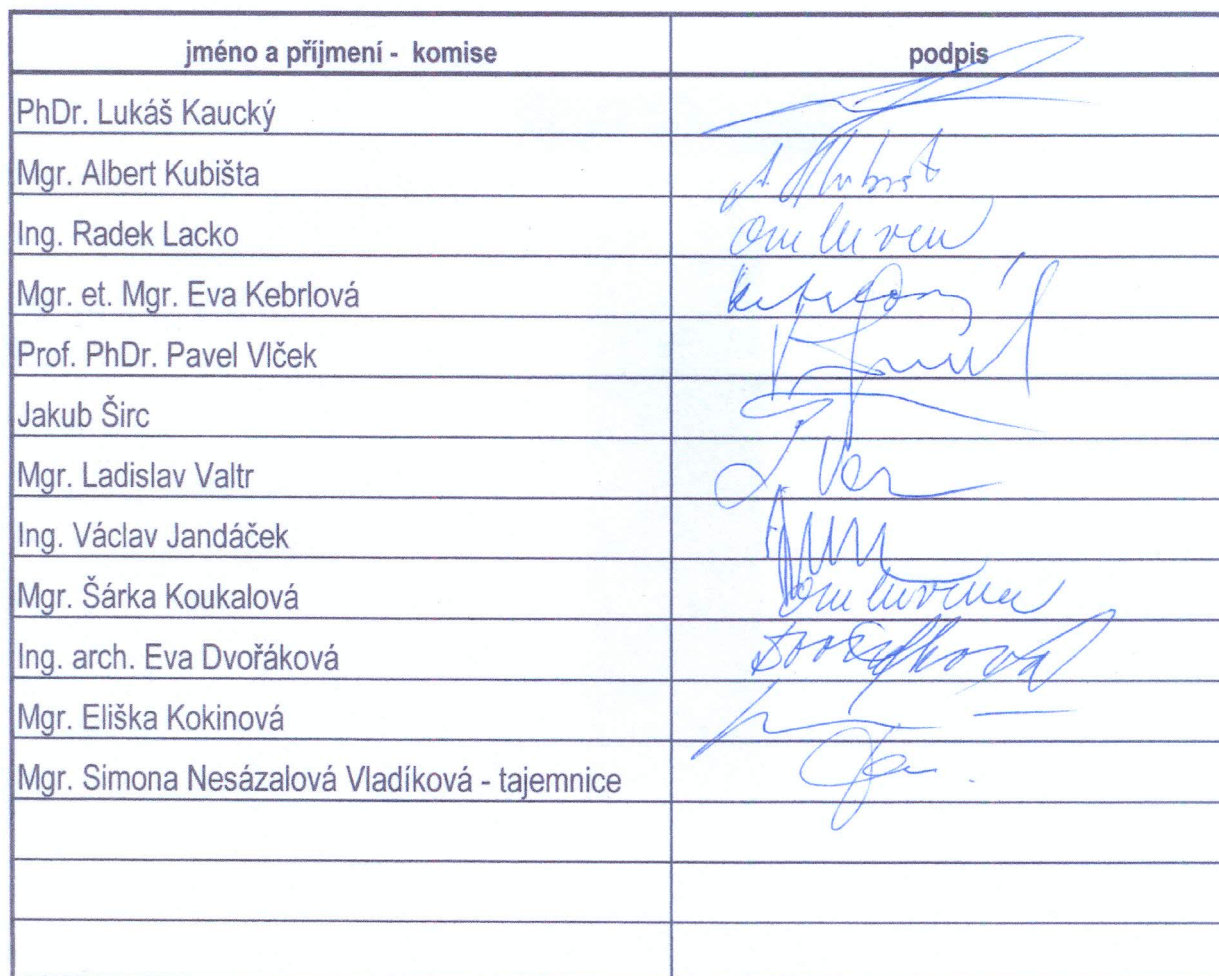 jméno a příjmení - komise podpis
PhDr. Lukáš Kaucký
Mgr. Albert Kubišta
Ing. Radek Lacko omluven
Mgr. et. Mgr. Eva Kebrlová Kebrlová
Prof. PhDr. Pavel Vlček
Jakub Širc
Mgr. Ladislav Valtr
Ing. Václav Jandáček
Mgr. Šárka Koukalová omluvena
Ing. arch. Eva Dvořáková Dvořáková
Mgr. Eliška Kokinová
Mgr. Simona Nesázalová Vladíková - tajemnice